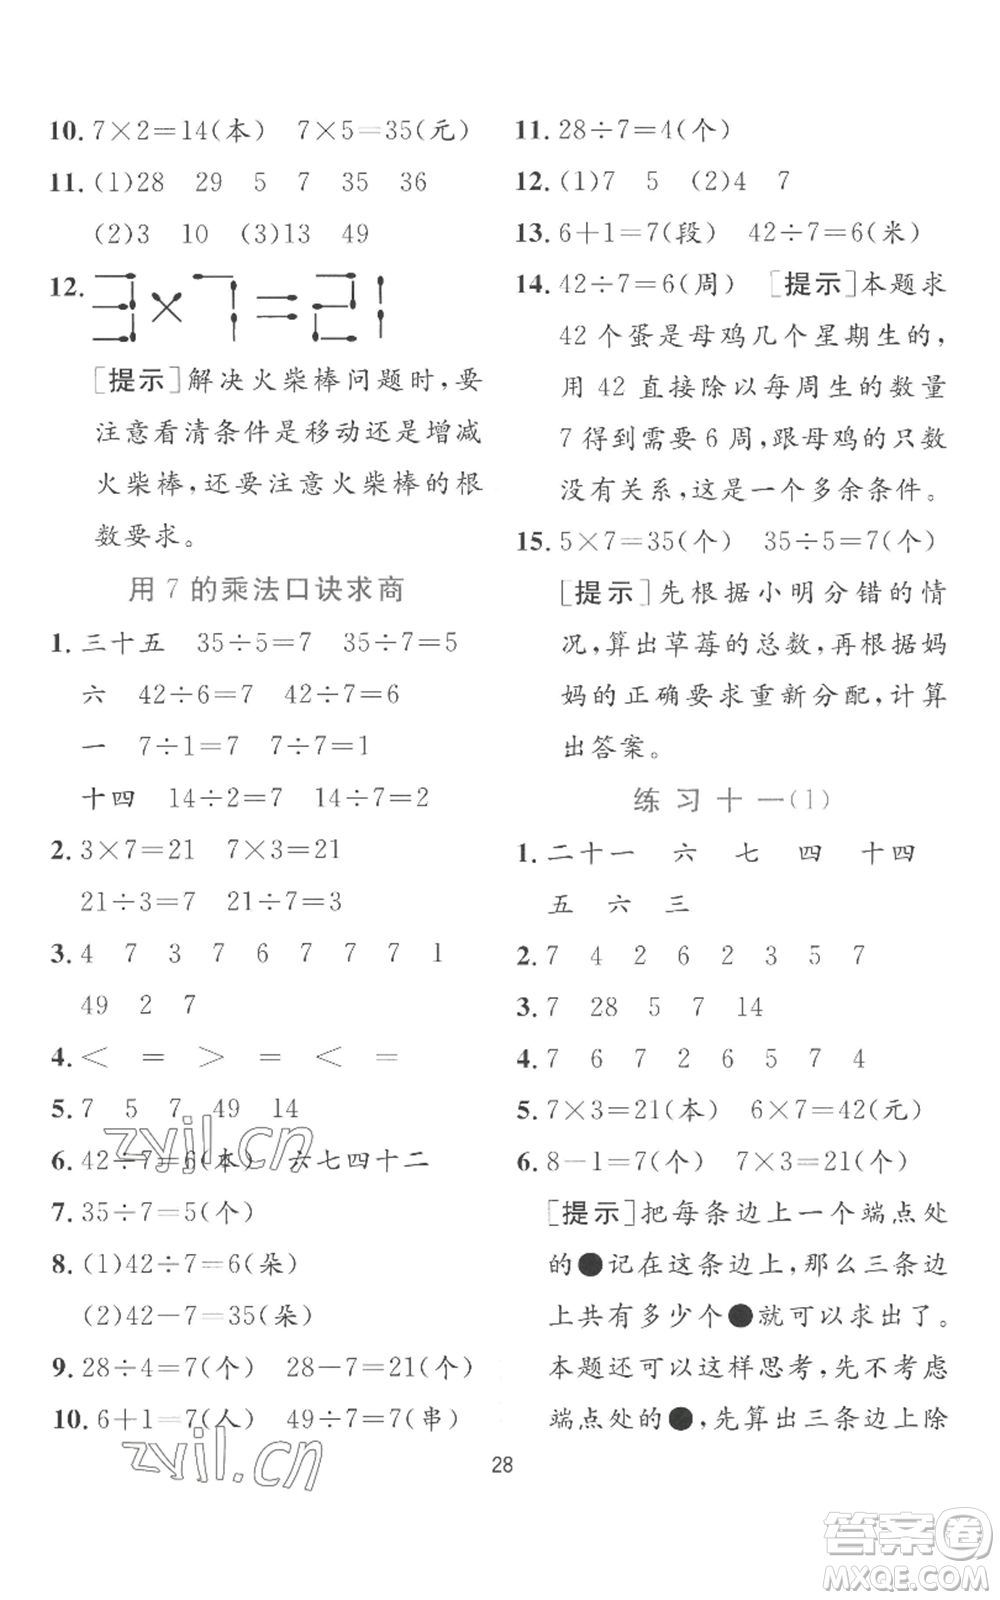 10. 7×2=14(本) 7×5=35(元)
11. (1)28 29 5 7 35 36
(2)3 10 (3)13 49
12. 3×7=21
[提示]解决火柴棒问题时,要
注意看清条件是移动还是增减
火柴棒,还要注意火柴棒的根
数要求。
用7的乘法口诀求商
1. 三十五 35÷5=7 35÷7=5
六 42÷6=7 42÷7=6
一 7÷1=7 7÷7=1
十四 14÷2=7 14÷7=2
2. 3×7=21 7×3=21
21÷3=7 21÷7=3
3. 4 7 3 7 6 7 7 7 1
49 2 7
4. < = > = < =
5. 7 5 7 49 14
6. 42÷7=6(本) 六七四十二
7. 35÷7=5(个)
8. (1)42÷7=6(朵)
(2)42-7=35(朵)
9. 28÷4=7(个) 28-7=21(个)
10. 6+1=7(人) 49÷7=7(串)
11. 28÷7=4(个)
12. (1)7 5 (2)4 7
13. 6+1=7(段) 42÷7=6(米)
14. 42÷7=6(周) [提示]本题求
42个蛋是母鸡几个星期生的,
用42直接除以每周生的数量
7得到需要6周,跟母鸡的只数
没有关系,这是一个多余条件。
15. 5×7=35(个) 35÷5=7(个)
[提示]先根据小明分错的情
况,算出草莓的总数,再根据妈
妈的正确要求重新分配,计算
出答案。
练习十一(1)
1. 二十一 六 七 四 十四
五 六 三
2. 7 4 2 6 2 3 5 7
3. 7 28 5 7 14
4. 7 6 7 2 6 5 7 4
5. 7×3=21(本) 6×7=42(元)
6. 8-1=7(个) 7×3=21(个)
[提示]把每条边上一个端点处
的●记在这条边上,那么三条边
上共有多少个●就可以求出了。
本题还可以这样思考,先不考虑
端点处的●,先算出三条边上除
28
zyjl.cn
zyjl.cn
答案卷
MXQE.COM